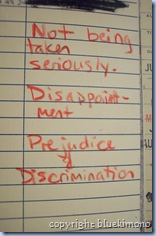 Not being
taken
seriously.
Disappoint-
ment
Prejudice
&
Discrimination
copyright: bluekimono